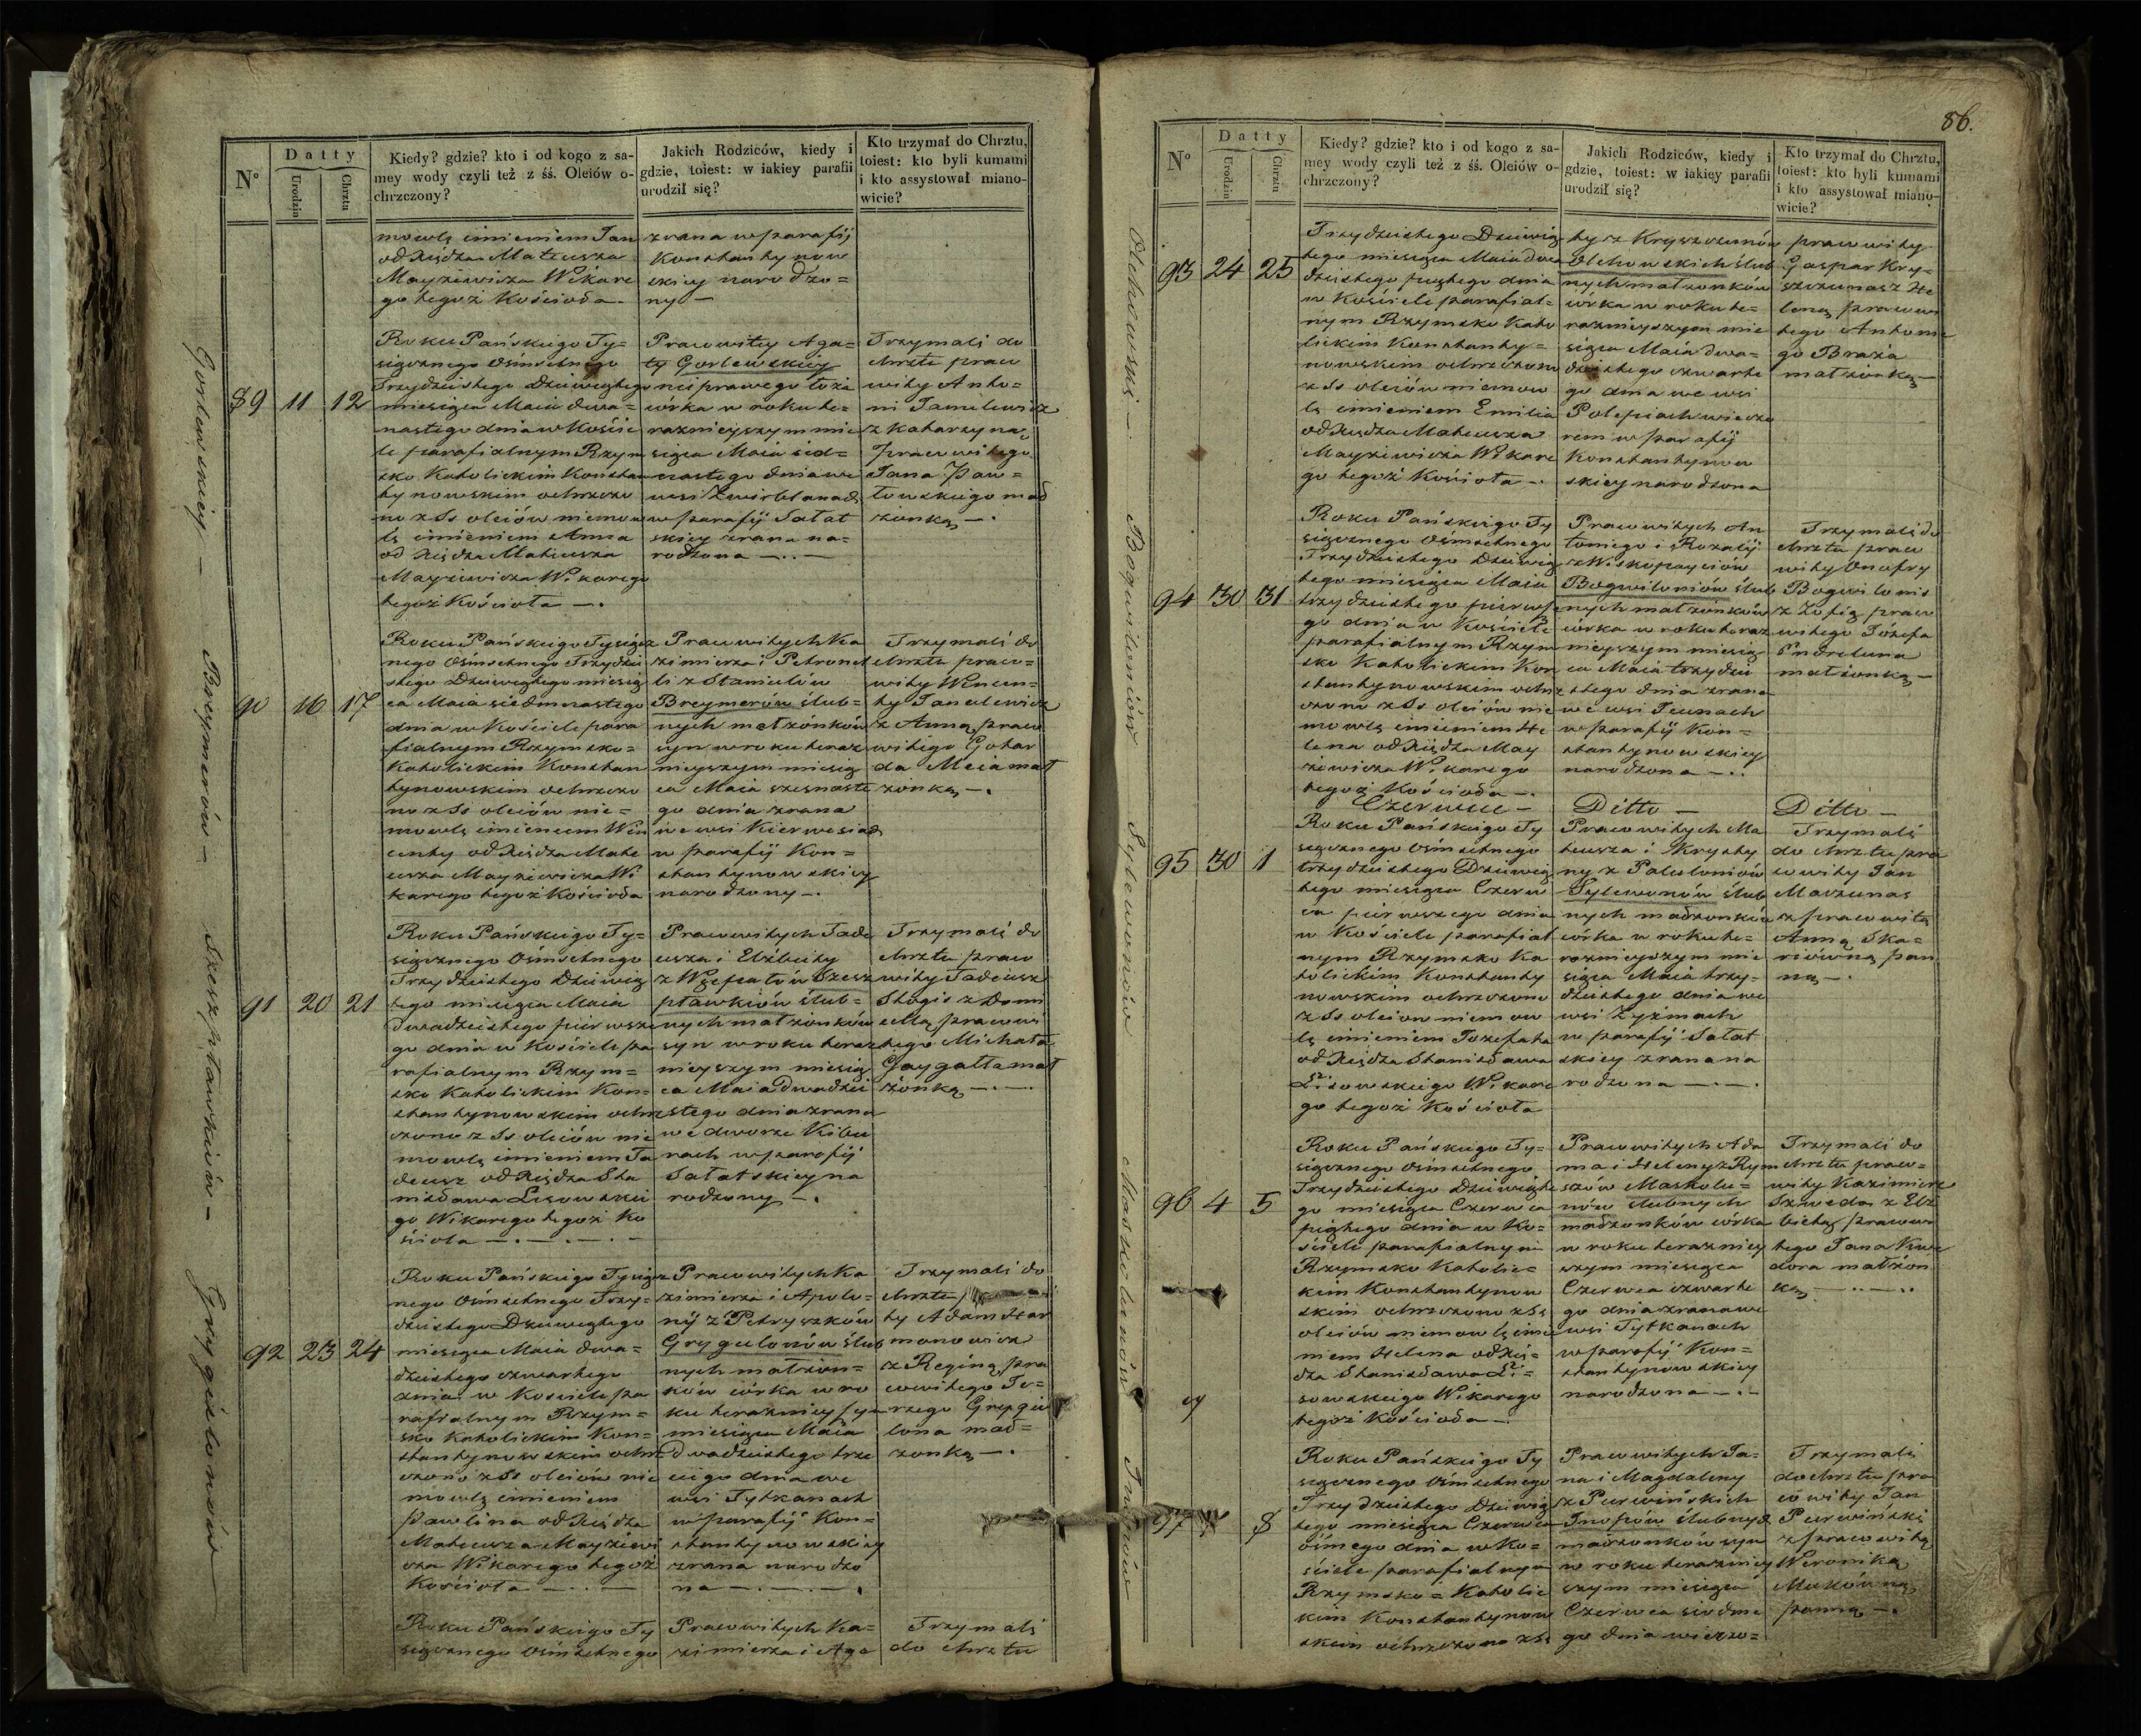 86.
N°
Datty
Urodzin
Chrztu
Kiedy? gdzie? kto i od kogo z sa-
mey wody czyli też z śś. Oleiów o-
chrzczony?
Jakich Rodziców, kiedy i
gdzie, toiest: w iakiey parafii
urodził się?
Kto trzymał do Chrztu,
toiest: kto byli kumami
i kto assystował miano-
wicie?
mowlę imieniem Jan
od Xiędza Mateusza
Mayziewicza Wikare
go tegoż Kościoła -
zrana w parafij
Konstantynow
skiey narodzo=
ny -
Gorlewskiey -
89 11 12
Roku Pańskiego Ty=
siącznego Ośmsetnego
Trzydziestego Dziewiątego
miesiąca Maia dwa=
nastego dnia w Kościе
le parafialnym Rzym
sko Katolickim Konstan
tynowskim ochrzczo
no z Ss oleiów niemow
lę imieniem Anna
od Xiędza Mateusza
Mayziewicza Wikarego
tegoż Kościoła -.
Pracowitey Aga=
ty Gorlewskiey
nieprawego łoża
córka w roku te=
raznieyszym mie
siąca Maia ied=
nastego dnia we
wsi
w parafij Sałat
skiey zrana na=
rodzona -..-
Trzymali do
chrztu praco
wity Anto=
ni Janulewicz
z Katarzyną
Pracowitego
Jana Paw=
łowskiego mał
żonką -.
Breymerów -
90 16 17
Roku Pańskiego Tysiącz
nego Ośmsetnego Trzydzie
stego Dziewiątego miesią
ca Maia siedmnastego
dnia w Kościele para
fialnym Rzymsko=
Katolickim Konstan
tynowskim ochrzczo
no z Ss oleiów nie=
mowlę imieniem Win
centy od Xiędza Mate
usza Mayziewicza Wi
karego tegoż Kościoła
Pracowitych Ka
zimierza i Petronel
li z Stamulów
Breymerów ślub=
nych małżonków
syn w roku teraz
nieyszym miesią
ca Maia szesnaste
go dnia zrana
we wsi Kierwesiad
w parafij Kon=
stantynowskiey
narodzony -.
Trzymali do
chrztu praco=
wity Wincen=
ty Janulewicz
z Anną praco
witego Gotar
da Meia mał
żonką -.
Szeszpławskiów -
91 20 21
Roku Pańskiego Ty=
siącznego Ośmsetnego
Trzydziestego Dziewią
tego miesiąca Maia
Dwudziestego pierwsze
go dnia w Kościele pa
rafialnym Rzym=
sko Katolickim Kon=
stantynowskim ochrz
czono z Ss oleiów nie
mowlę imieniem Ta
deusz od Xiędza Sta
nisława Lisowskie
go Wikarego tegoż Ko
ścioła -.-.-.-
Pracowitych Tade
usza i Elżbiety
z Szesz
pławkiów ślub=
nych małżonków
syn w roku teraz
nieyszym miesią
ca Maia Dwudzie
stego dnia zrana
we dworze Kibu
rach w parafij
Sałatskiey na
rodzony -.
Trzymali do
chrztu praco
wity Tadeusz
Stogis z Domi
cellą pracowi
tego Michała
Gaygałła mał
żonką -.-.
Grygielonów
92 23 24
Roku Pańskiego Tysiącz
nego Ośmsetnego Trzy=
dziestego Dziewiątego
miesiąca Maia dwu=
dziestego czwartego
dnia w Kościele pa
rafialnym Rzym=
sko Katolickim Kon=
stantynowskim ochrz
czono z Ss oleiów nie
mowlę imieniem
Pawlina od Xiędza
Mateusza Mayziewi
cza Wikarego tegoż
Kościoła -.-
Pracowitych Ka
zimierza i Apolo=
nij z Petryszków
Grygulonów ślub
nych małżon=
ków córka w ro
ku teraznieyszym
miesiąca Maia
Dwudziestego trze
ciego dnia we
wsi Tytkanach
w parafij Kon=
stantynowskiey
zrana narodzo
na -.-.-.
Trzymali do
chrztu
ty Adam Har
monowicz
z Reginą pra
cowitego Je=
rzego Grygie
lona mał=
żonką -.
Roku Pańskiego Ty
siącznego Ośmsetnego
Pracowitych Ka=
zimierza i Aga
Trzymali
do chrztu
N°
Datty
Urodzin
Chrztu
Kiedy? gdzie? kto i od kogo z sa-
mey wody czyli też z śś. Oleiów o-
chrzczony?
Jakich Rodziców, kiedy i
gdzie, toiest: w iakiey parafii
urodził się?
Kto trzymał do Chrztu,
toiest: kto byli kumami
i kto assystował miano-
wicie?
Olchowskiś -.
93 24 25
Trzydziestego Dziewią
tego miesiąca Maia dwu
dziestego piątego dnia
w Kościele parafial=
nym Rzymsko Kato
lickim Konstanty=
nowskim ochrzczono
z Ss oleiów niemow
lę imieniem Emilia
od Xiędza Mateusza
Mayziewicza Wikare
go tegoż Kościoła -.
ty z Kryszczunów
Olchowskich ślub
nych małżonków
córka w roku te=
raznieyszym mie
siąca Maia dwu=
dziestego czwarte
go dnia we wsi
Polepiach wieczo
rem w parafij
Konstantynow
skiey narodzona
pracowity
Gaspar Kry=
szczunasz He
leną pracowi
tego Antonie
go Braża
małżonką -
Bogwilonów
94 30 31
Roku Pańskiego Ty
siącznego Ośmsetnego
Trzydziestego Dziewią
tego miesiąca Maia
trzydziestego pierwsze
go dnia w Kościele
parafialnym Rzym
sko Katolickim Kon
stantynowskim ochrz
czono z Ss oleiów nie
mowlę imieniem He
lena od Xiędza May
ziewicza Wikarego
tegoż Kościoła -.
Pracowitych An
toniego i Rozalij
z Wiskupayciów
Bogwilonów ślub
nych małżonków
córka w roku teraz
nieyszym miesią
ca Maia trzydzie
stego dnia zrana
we wsi Jeunach
w parafij Kon=
stantynowskiey
narodzona -..
Trzymali do
chrztu praco
wity Onofry
Bogwilonis
z Zofią praco
witego Józefa
małżonką -
Czerwiec - Ditto - Ditto -
Sylewonów
95 30 1
Roku Pańskiego Ty
siącznego Ośmsetnego
trzydziestego Dziewią
tego miesiąca Czerw
ca pierwszego dnia
w Kościele parafial
nym Rzymsko Ka
tolickim Konstanty
nowskim ochrzczono
z Ss oleiow niemow
lę imieniem Jozefata
od Xiędza Stanisława
Lisowskiego Wikare
go tegoż Kościoła
Pracowitych Ma
teusza i Krysty
ny z Paluloniów
Sylewonów ślub
nych małżonków
córka w roku te=
raznieyszym mie
siąca Maia trzy=
dziestego dnia we
wsi Żyżmach
w parafij Sałat
skiey zrana na
rodzona -.-.
Trzymali
do chrztu pra
cowity Jan
Maczunas
z pracowitą
Anną Ska=
riówną pan
ną -.
Maskolunów
96 4 5
Roku Pańskiego Ty=
siącznego Ośmsetnego
Trzydziestego Dziewiąte
go miesiąca Czerwca
piątego dnia w Ko=
ściele parafialnym
Rzymsko Katolic=
kim Konstantynow
skim ochrzczono z Ss
oleiów niemowlę imie
niem Helena od Xię=
dza Stanisława Li=
sowskiego Wikarego
tegoż Kościoła -.
Pracowitych Ada
ma i Heleny z Rym
szów Maskolu=
nów ślubnych
małżonków córka
w roku terazniey
szym miesiąca
Czerwca czwarte
go dnia zrana we
wsi Tytkanach
w parafij Kon=
stantynowskiey
narodzona -.-
Trzymali do
chrztu praco=
wity Kazimierz
Szweda z Elż
bietą pracowi
tego Jana
dora małżon
ką -..-..
Tnopów
97 8
Roku Pańskiego Ty
siącznego Ośmsetnego
Trzydziestego Dziewią
tego miesiąca Czerwca
ósmego dnia w Ko=
ściele parafialnym
Rzymsko=Katolic
kim Konstantynow
skim ochrzczono z Ss
Pracowitych Ja=
na i Magdaleny
z Purwińskich
Tnopów ślubnych
małżonków syn
w roku terazniey
szym miesiąca
Czerwca siodme
go dnia wieczo=
Trzymali
do chrztu pra
cowity Jan
Purwiński
z pracowitą
Weroniką
Mukówną
panną -.